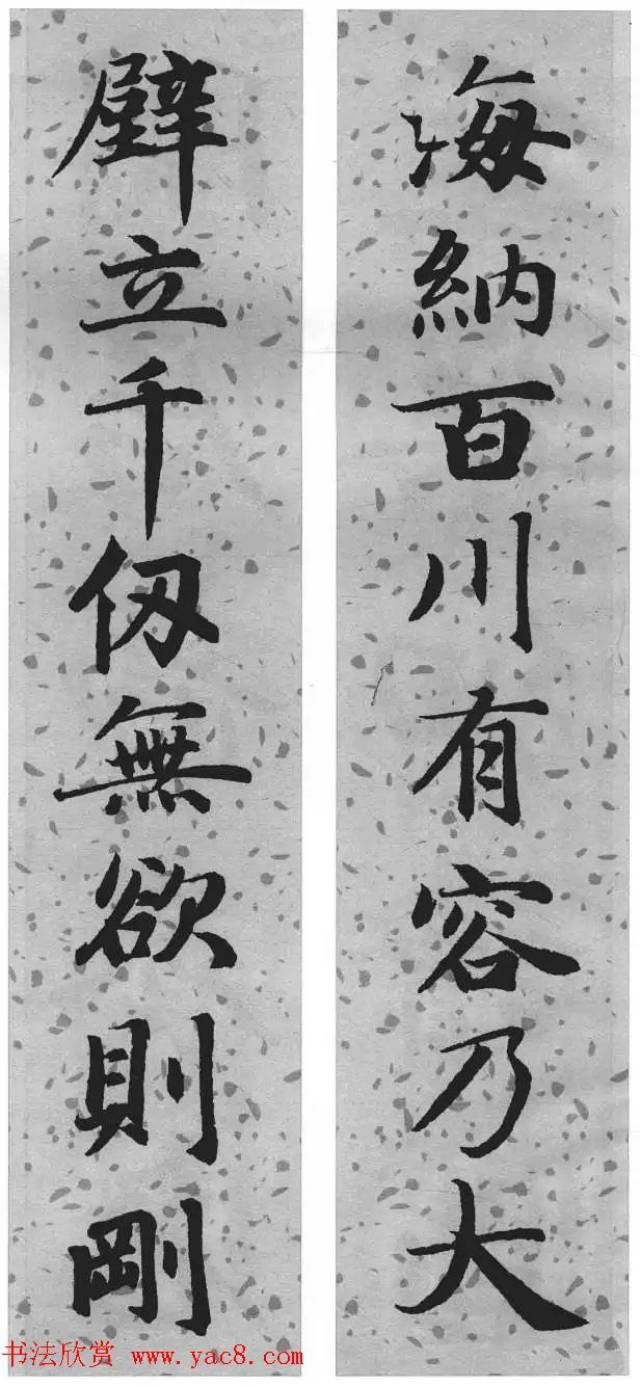 海納百川有容乃大
壁立千仞無欲則剛
书法欣赏 www.yac8.com